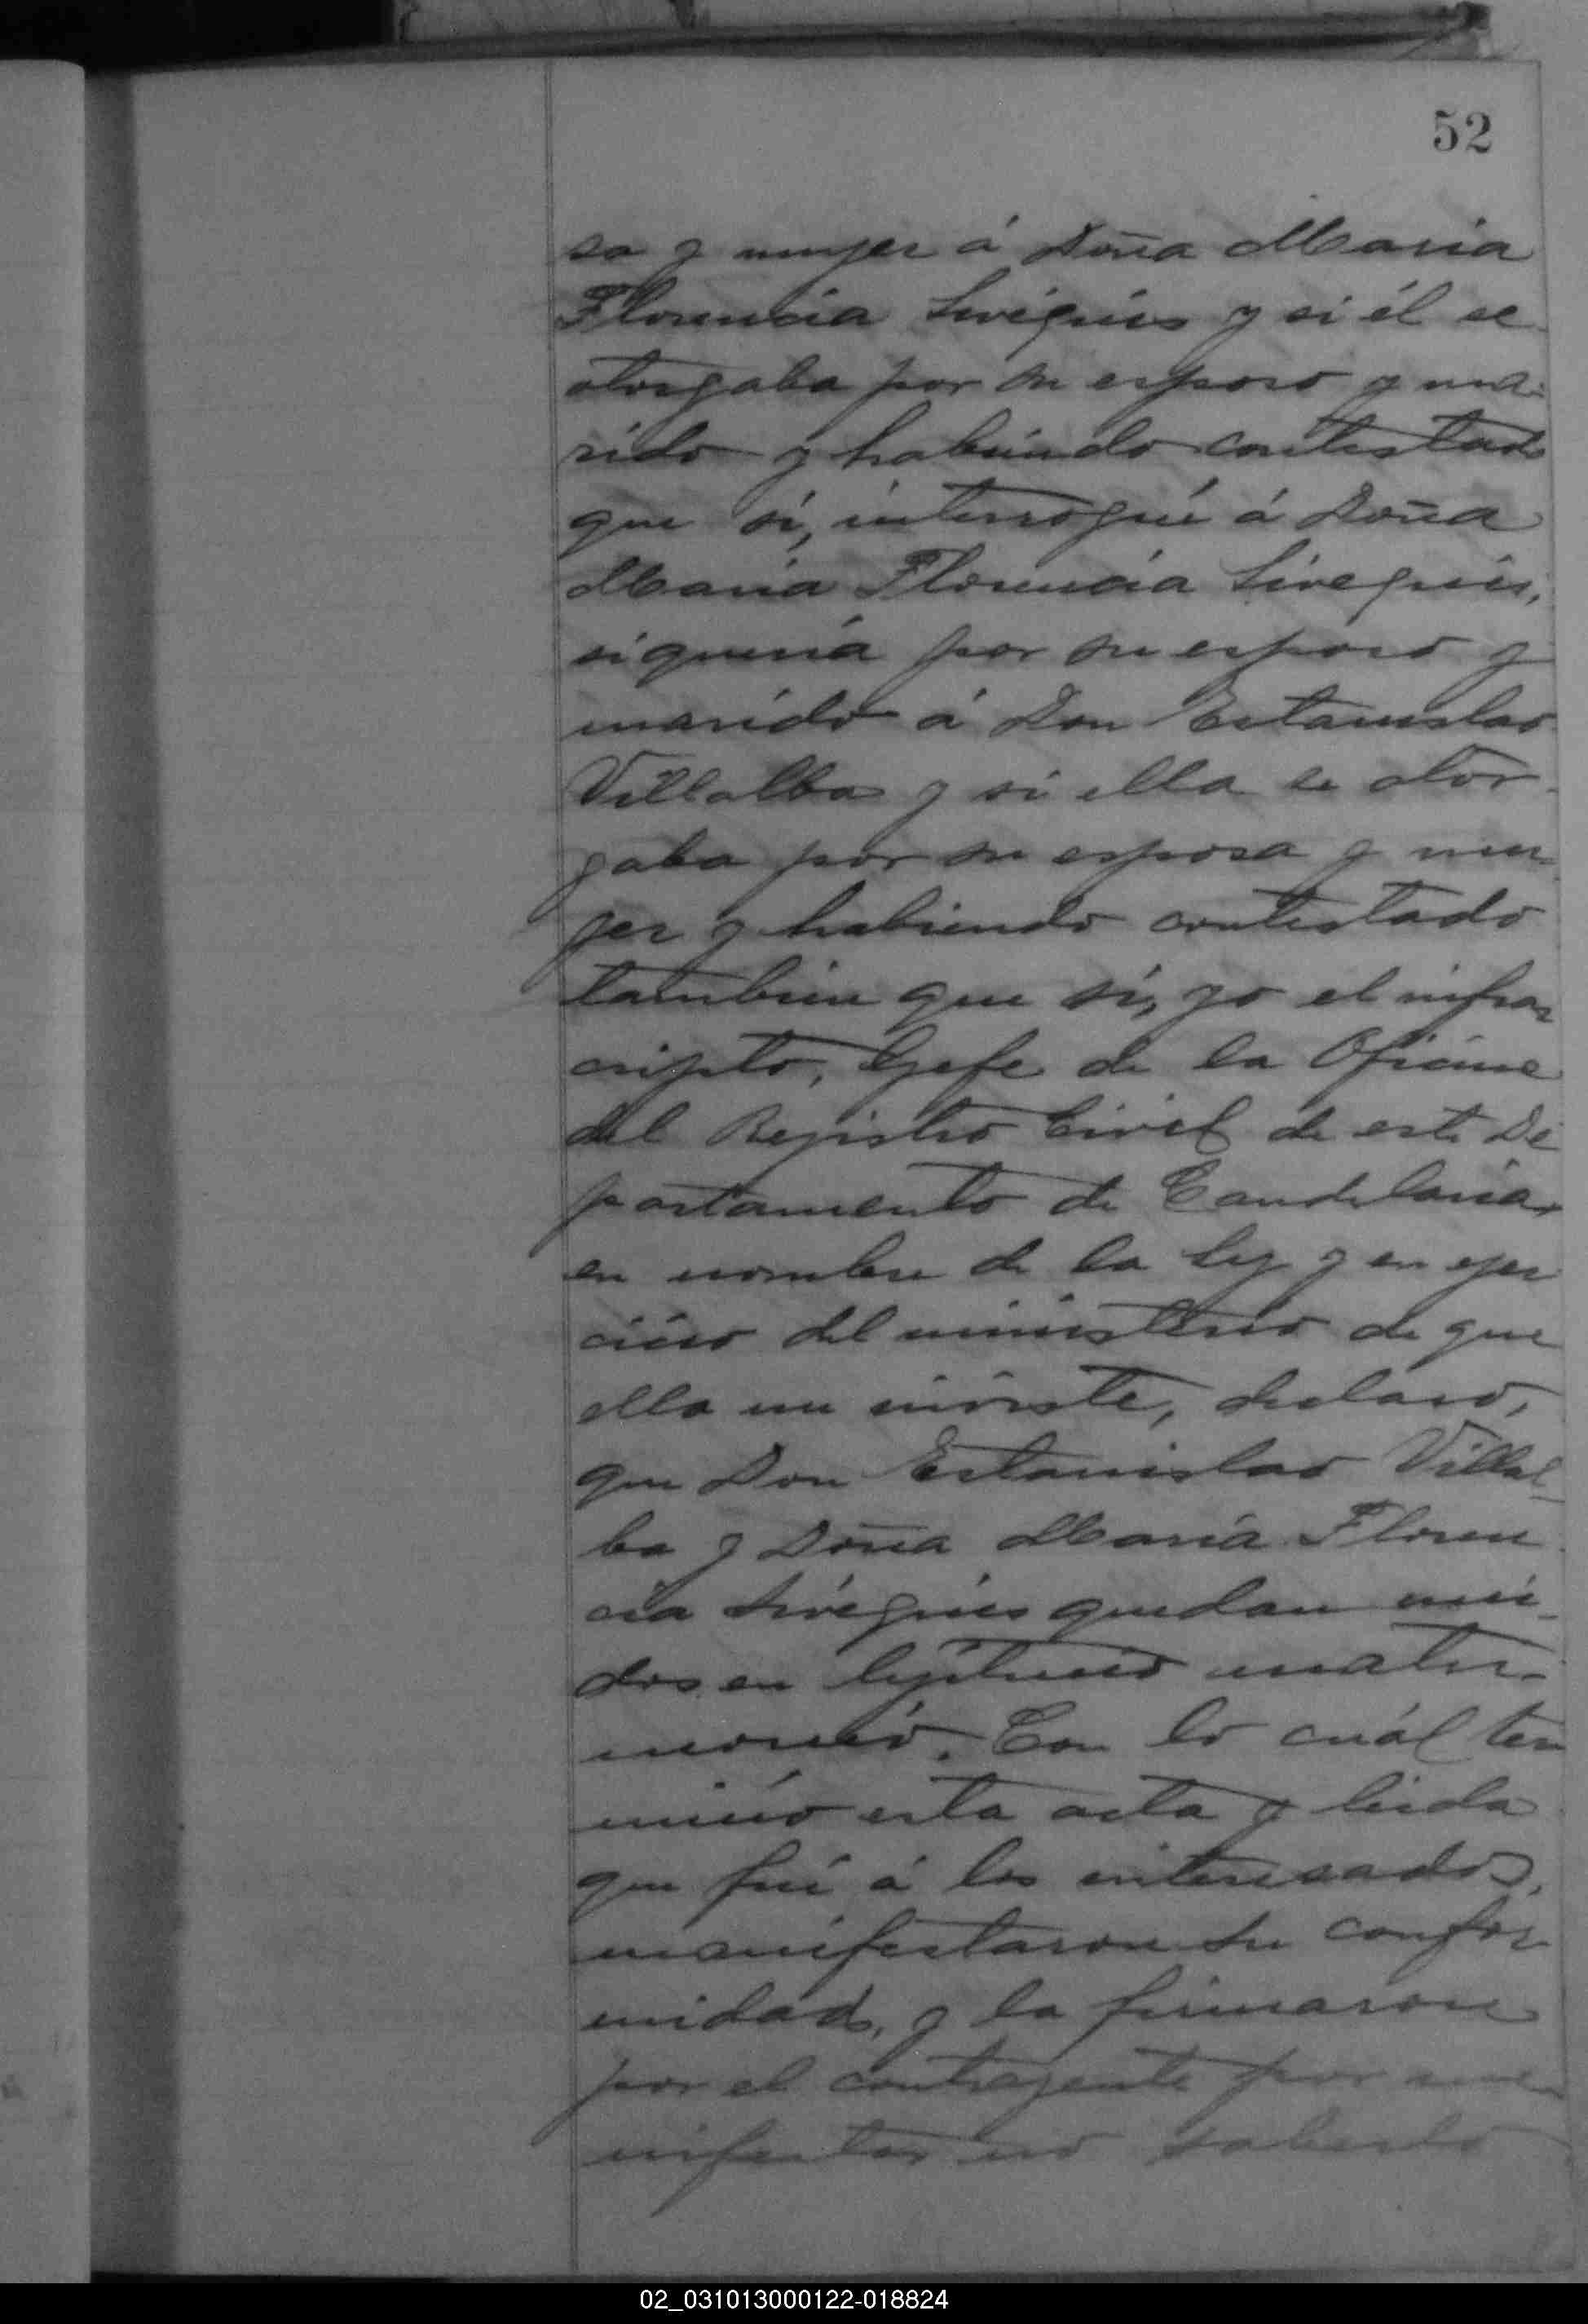 52
sa y mujer á Doña Maria
Florencia Sivigúes y si él se
otorgaba por su esposo y ma-
rido y habiendo contestado
que sí, interrogué á Doña
Maria Florencia Siveguis,
si queria por su esposo y
marido á Don Estanislao
Villalba y si ella se otor-
gaba por su esposa y mu-
jer y habiendo contestado
tambien que sí, yo el infras
cripto, Gefe de la Oficina
del Registro Civil de este De
partamento de Candelaria,
en nombre de la ley y en ejer
cicio del ministerio de que
ella me inviste, declaro,
que Don Estanislao Villal-
ba y Doña Maria Floren
cia Sivéguis quedan uni-
dos en legítimo matri-
monio. Con lo cuál ter
minó esta acta y leida
que fué á los interesados,
manifestaron su confor
midad, y la firmaron
por el contrayente por ma
nifestar no saberlo
02_031013000122-018824